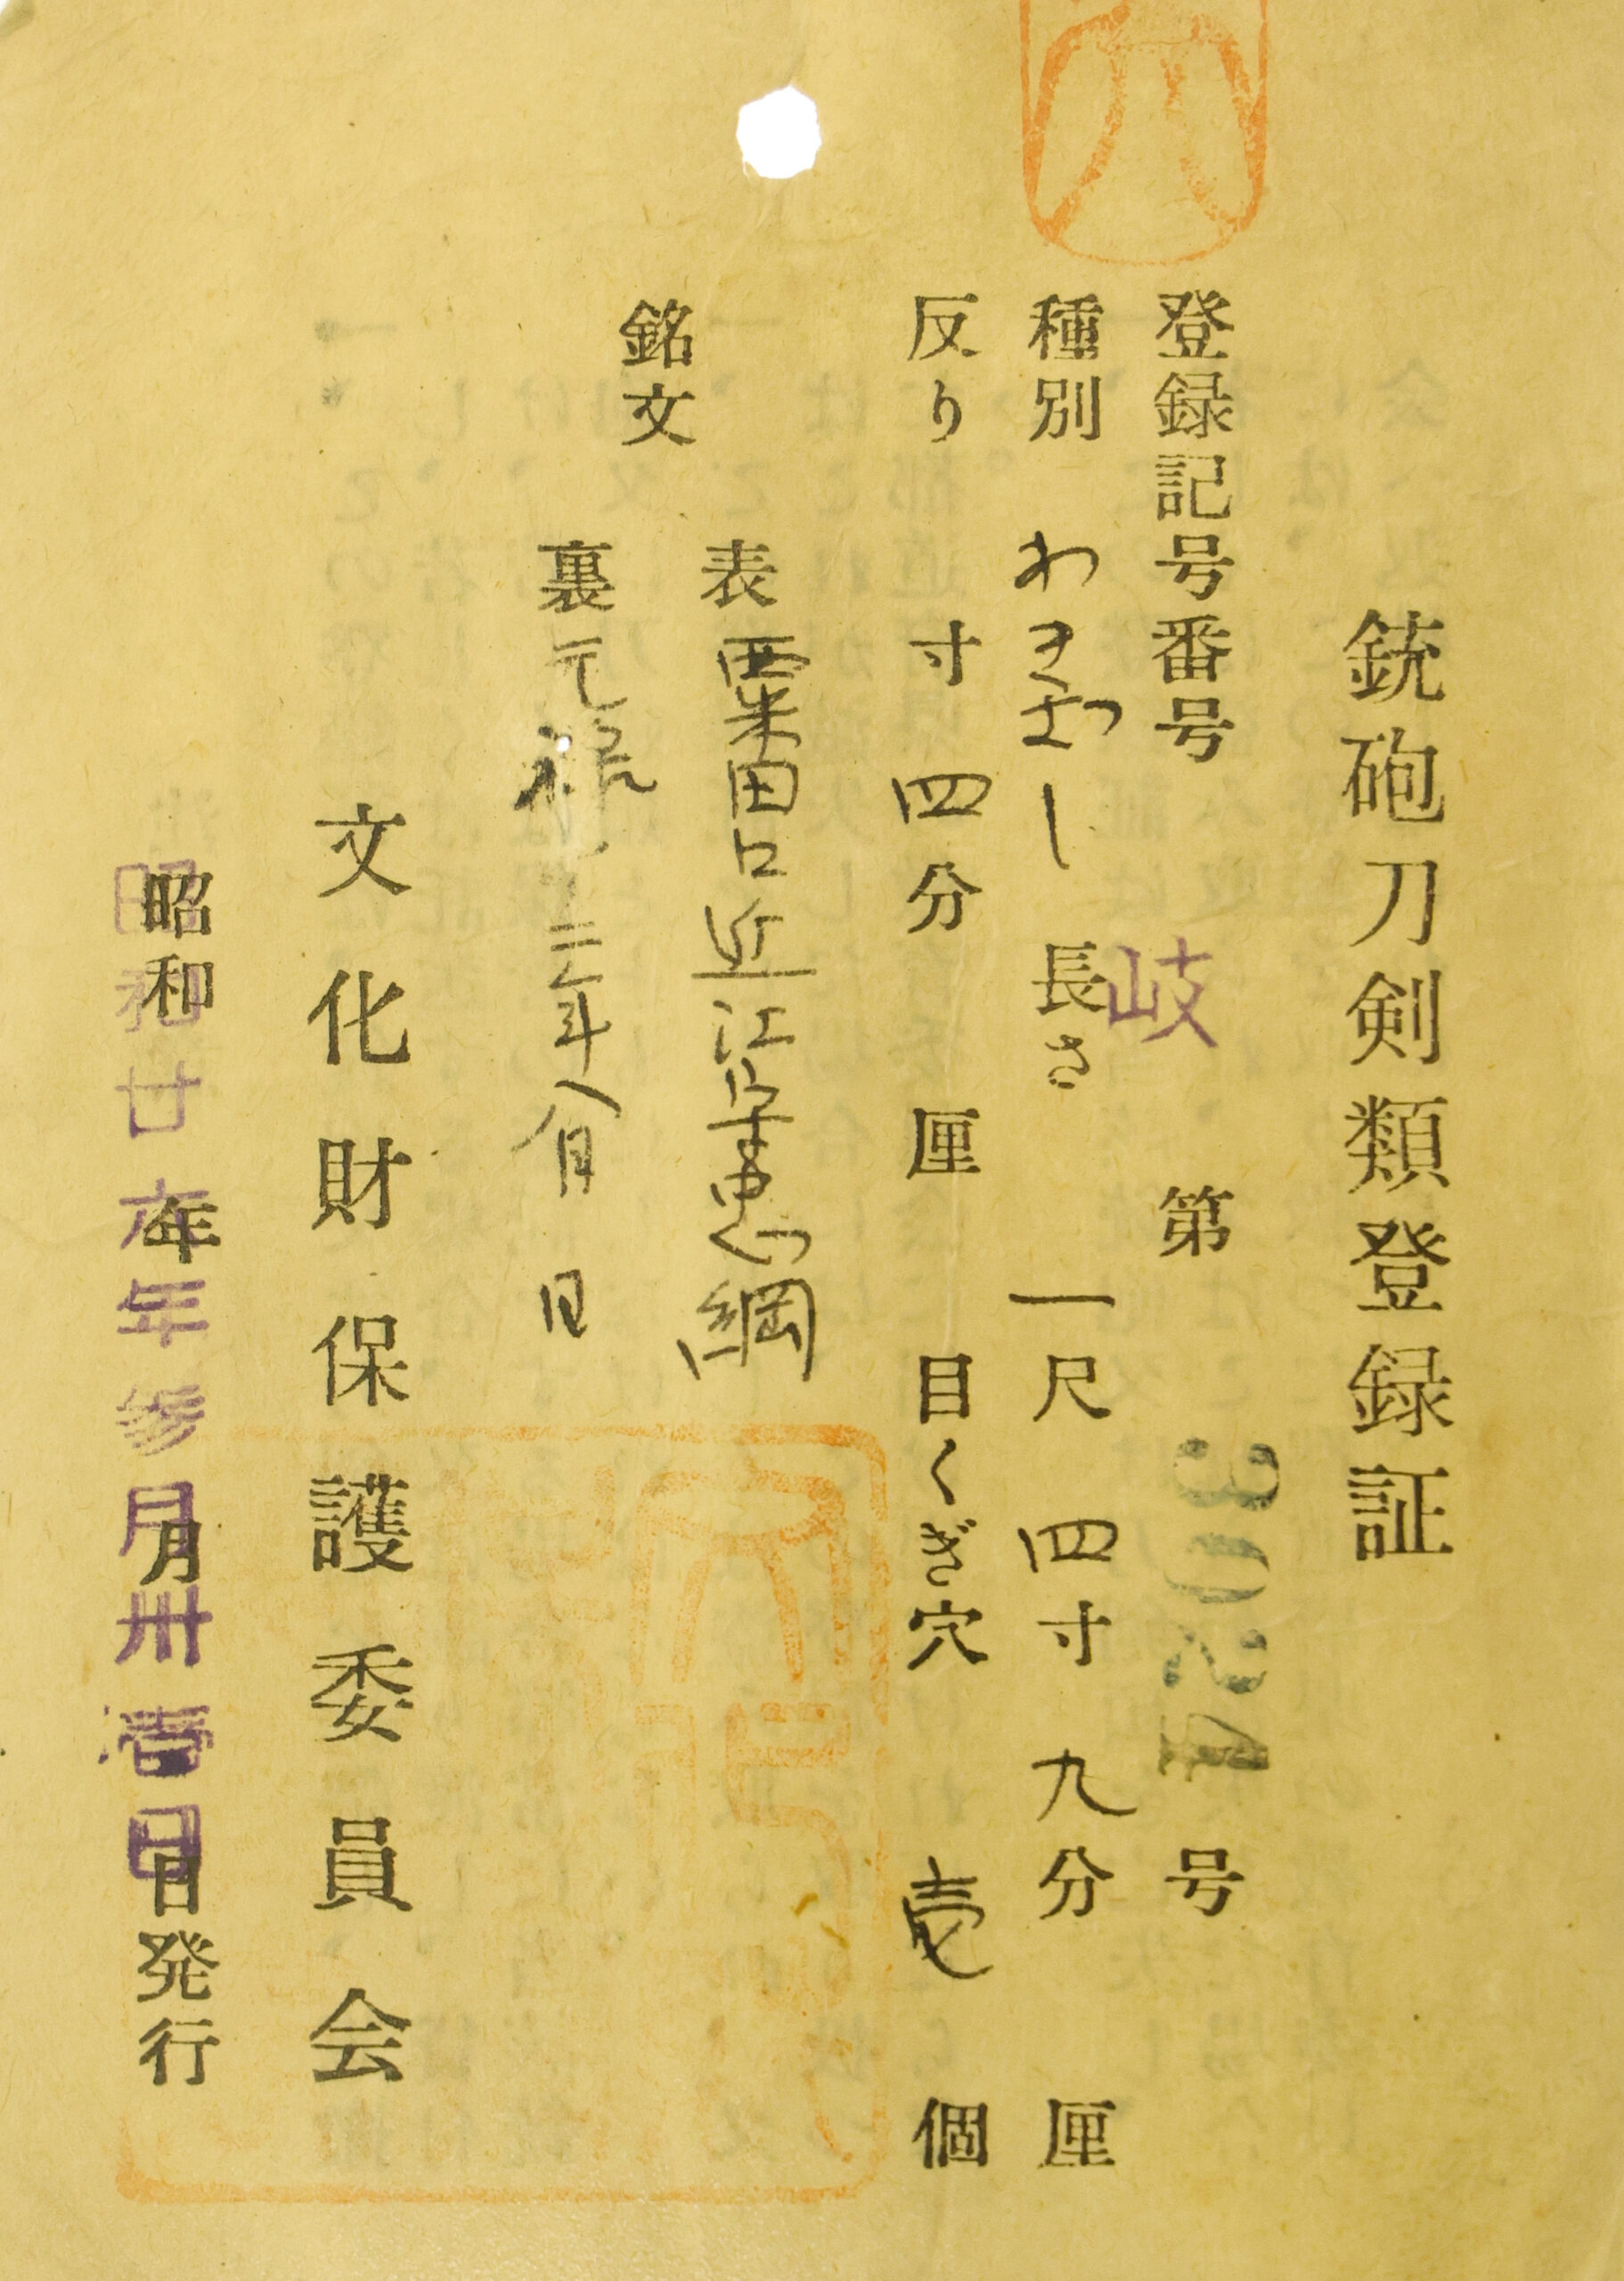 銃砲刀剣類登録証
登録記号番号 岐 第 3024 号
種別 わきざし 長さ 一尺 四寸 九分 厘
反り 寸 四分 厘 目くぎ穴 壱 個
銘文
表 粟田口近江守忠綱
裏 元禄 二年八月 日
文化財保護委員会
昭和 年 月 日発行
昭和廿六年参月卅壱日